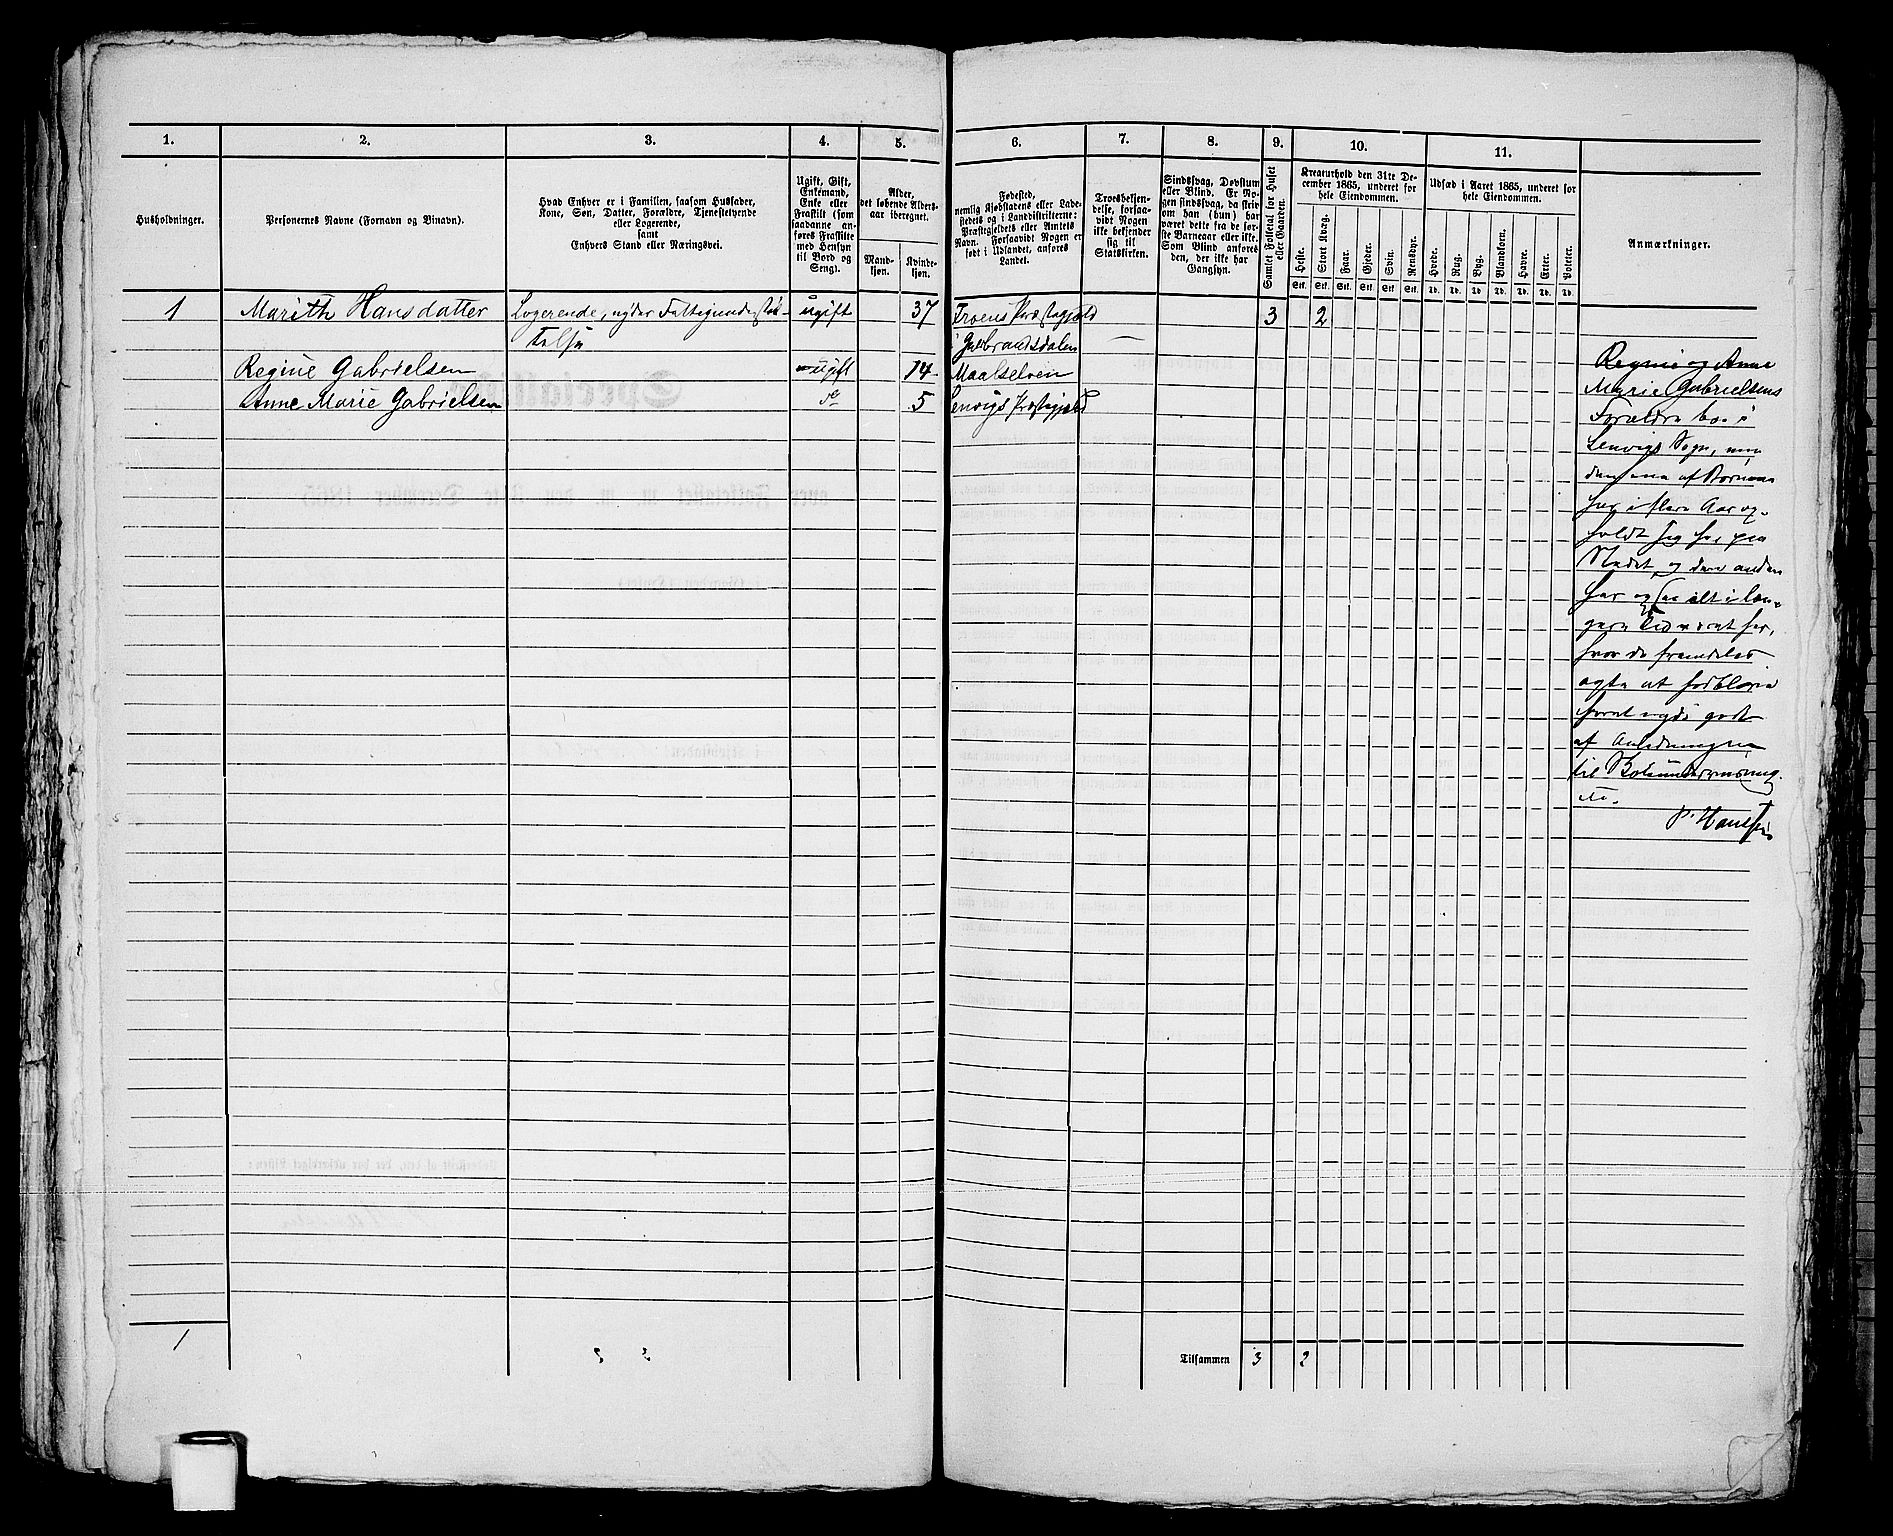 1. 2. 3. 4. 5. 6. 7. 8. 9. 10. 11.
Husholdninger.
Personernes Navne (Fornavn og Binavn).
Hvad Enhver er i Familien, saasom Husfader,
Kone, Søn, Datter, Forældre, Tjenestetyende
eller Logerende,
samt
Enhvers Stand eller Næringsvei.
Ugift, Gift,
Enkemand,
Enke eller
Fraskilt (som
saadanne an-
føres Fraskilte
med Hensyn
til Bord og
Seng).
Alder,
det løbende Alders-
aar iberegnet.
Mand-
kjøn.
Kvinde-
kjøn.
Fødested,
nemlig Kjøbstadens eller Lade-
stedets og i Landdistrikterne:
Præstegjeldets eller Amtets
Navn. Forsaavidt Nogen er
født i Udlandet, anføres
Landet.
Troesbekjen-
delse, forsaa-
vidt Nogen
ikke bekjender
sig til
Statskirken.
Sindssvag, Døvstum
eller Blind. Er No-
gen sindssvag, da skriv
om han (hun) har
været dette fra de før-
ste Barneaar eller ikke.
Som Blind anføres
den, der ikke har
Gangsyn.
Samlet Folketal for Huset
eller Gaarden.
Kreaturhold den 31te De-
cember 1865, underet for
hele Eiendommen.
Heste. Stort Kvæg. Faar. Gjeder. Svin. Rensdyr.
Stk. Stk. Stk. Stk. Stk. Stk.
Udsæd i Aaret 1865, underet for
hele Eiendommen.
Hvede. Rug. Byg. Blandkorn. Havre. Erter. Poteter.
Td. Td. Td. Td. Td. Td. Td.
Anmærkninger.
1 Marith Hansdatter Logerende, nyder Fattigunderstøt- ugift 37 Froens Præstegjeld 3 2
telse i Gulbrandsdalen
Regine Gabrielsen ugift 14 Maalselven
Anne Marie Gabrielsen do 5 Lenvigs Præstegjeld
Regine og Anne
Marie Gabrielsens
Forældre bo i
Lenvigs Sogn, men
den ene af Børnene
har i flere Aar op-
holdt sig her paa
Stedet, og den anden
har ogsaa alt i læn-
gere Tid været her,
hvor de fremdeles
agte at forblive
for at nyde godt
af Anledningen
til Skoleundervisning
etc.
P. Hansen
1
Tilsammen 3 2